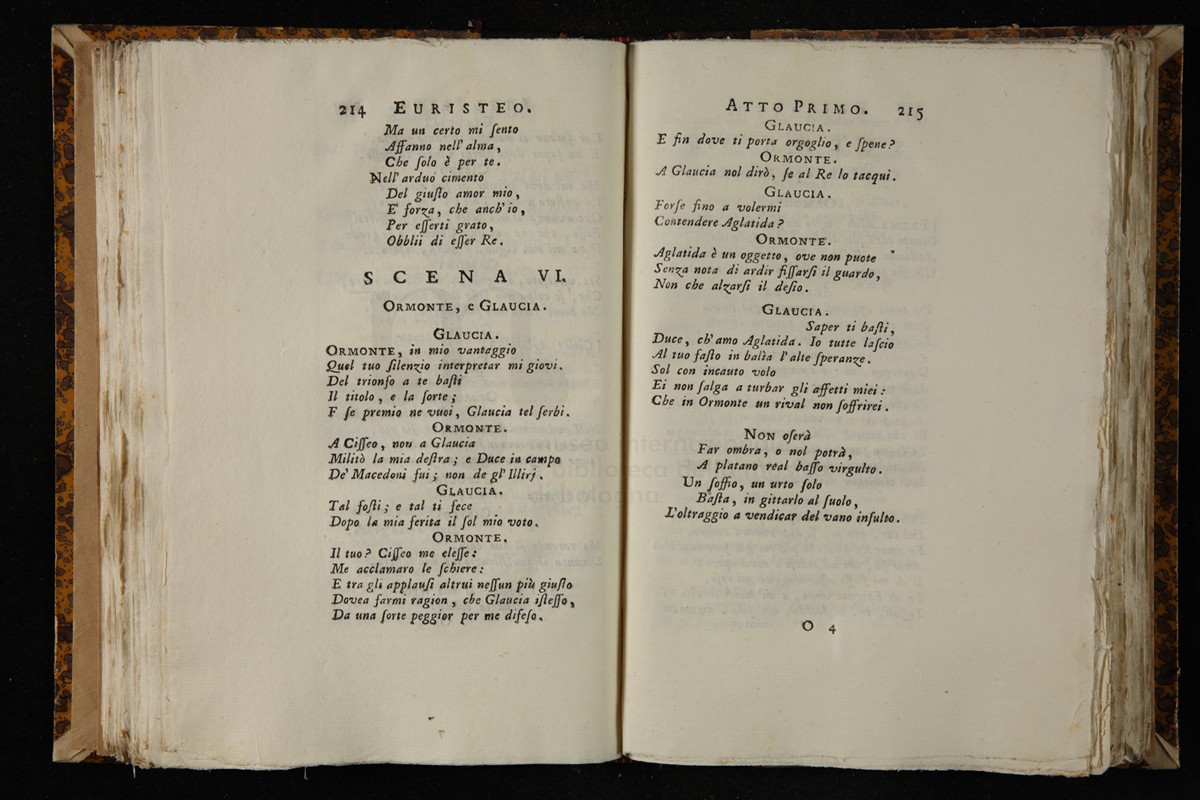 214 EURISTEO.
Ma un certo mi ſento
Affanno nell' alma,
Che ſolo è per te.
Nell' arduo cimento
Del giuſto amor mio,
E' forza, che anch' io,
Per eſſerti grato,
Obblii di eſſer Re.
SCENA VI.
ORMONTE, e GLAUCIA.
GLAUCIA.
ORMONTE, in mio vantaggio
Quel tuo ſilenzio interpretar mi giovi.
Del trionfo a te baſti
Il titolo, e la ſorte;
E ſe premio ne vuoi, Glaucia tel ſerbi.
ORMONTE.
A Ciſſeo, non a Glaucia
Militò la mia deſtra; e Duce in campo
De' Macedoni fui; non de gl' Illirj.
GLAUCIA.
Tal foſti; e tal ti fece
Dopo la mia ferita il ſol mio voto.
ORMONTE.
Il tuo? Ciſſeo me eleſſe:
Me acclamaro le ſchiere:
E tra gli applauſi altrui neſſun più giuſto
Dovea farmi ragion, che Glaucia iſteſſo,
Da una ſorte peggior per me difeſo.
ATTO PRIMO. 215
GLAUCIA.
E fin dove ti porta orgoglio, e ſpene?
ORMONTE.
A Glaucia nol dirò, ſe al Re lo tacqui.
GLAUCIA.
Forſe fino a volermi
Contendere Aglatida?
ORMONTE.
Aglatida è un oggetto, ove non puote
Senza nota di ardir fiſſarſi il guardo,
Non che alzarſi il deſio.
GLAUCIA.
Saper ti baſti,
Duce, ch' amo Aglatida. Io tutte laſcio
Al tuo faſto in balìa l' alte ſperanze.
Sol con incauto volo
Ei non ſalga a turbar gli affetti miei:
Che in Ormonte un rival non ſoffrirei.
NON oſerà
Far ombra, o nol potrà,
A platano real baſſo virgulto.
Un ſoffio, un urto ſolo
Baſta, in gittarlo al ſuolo,
L'oltraggio a vendicar del vano inſulto.
O 4
museo interna
biblioteca d
di bologna